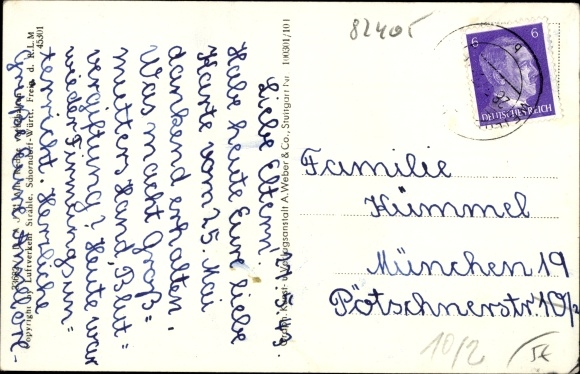 82405
6 6
DEUTSCHES REICH
Familie
Kümmel
München 19
Pötschnerstr. 10/2
10/2
Liebe Eltern!
Habe heute Eure liebe
Karte vom 25. Mai
dankend erhalten.
Was macht Groß=
mutters Hand, Blut=
vergiftung? Heute war
wieder Firmungsun=
terricht. Herzliche
Graph. Kunst- u. Verlagsanstalt A. Weber & Co., Stuttgart Nr. 100301/101
Copyright by Luftverkehr Strähle, Schorndorf-Württ. Freig. d. R.L.M.